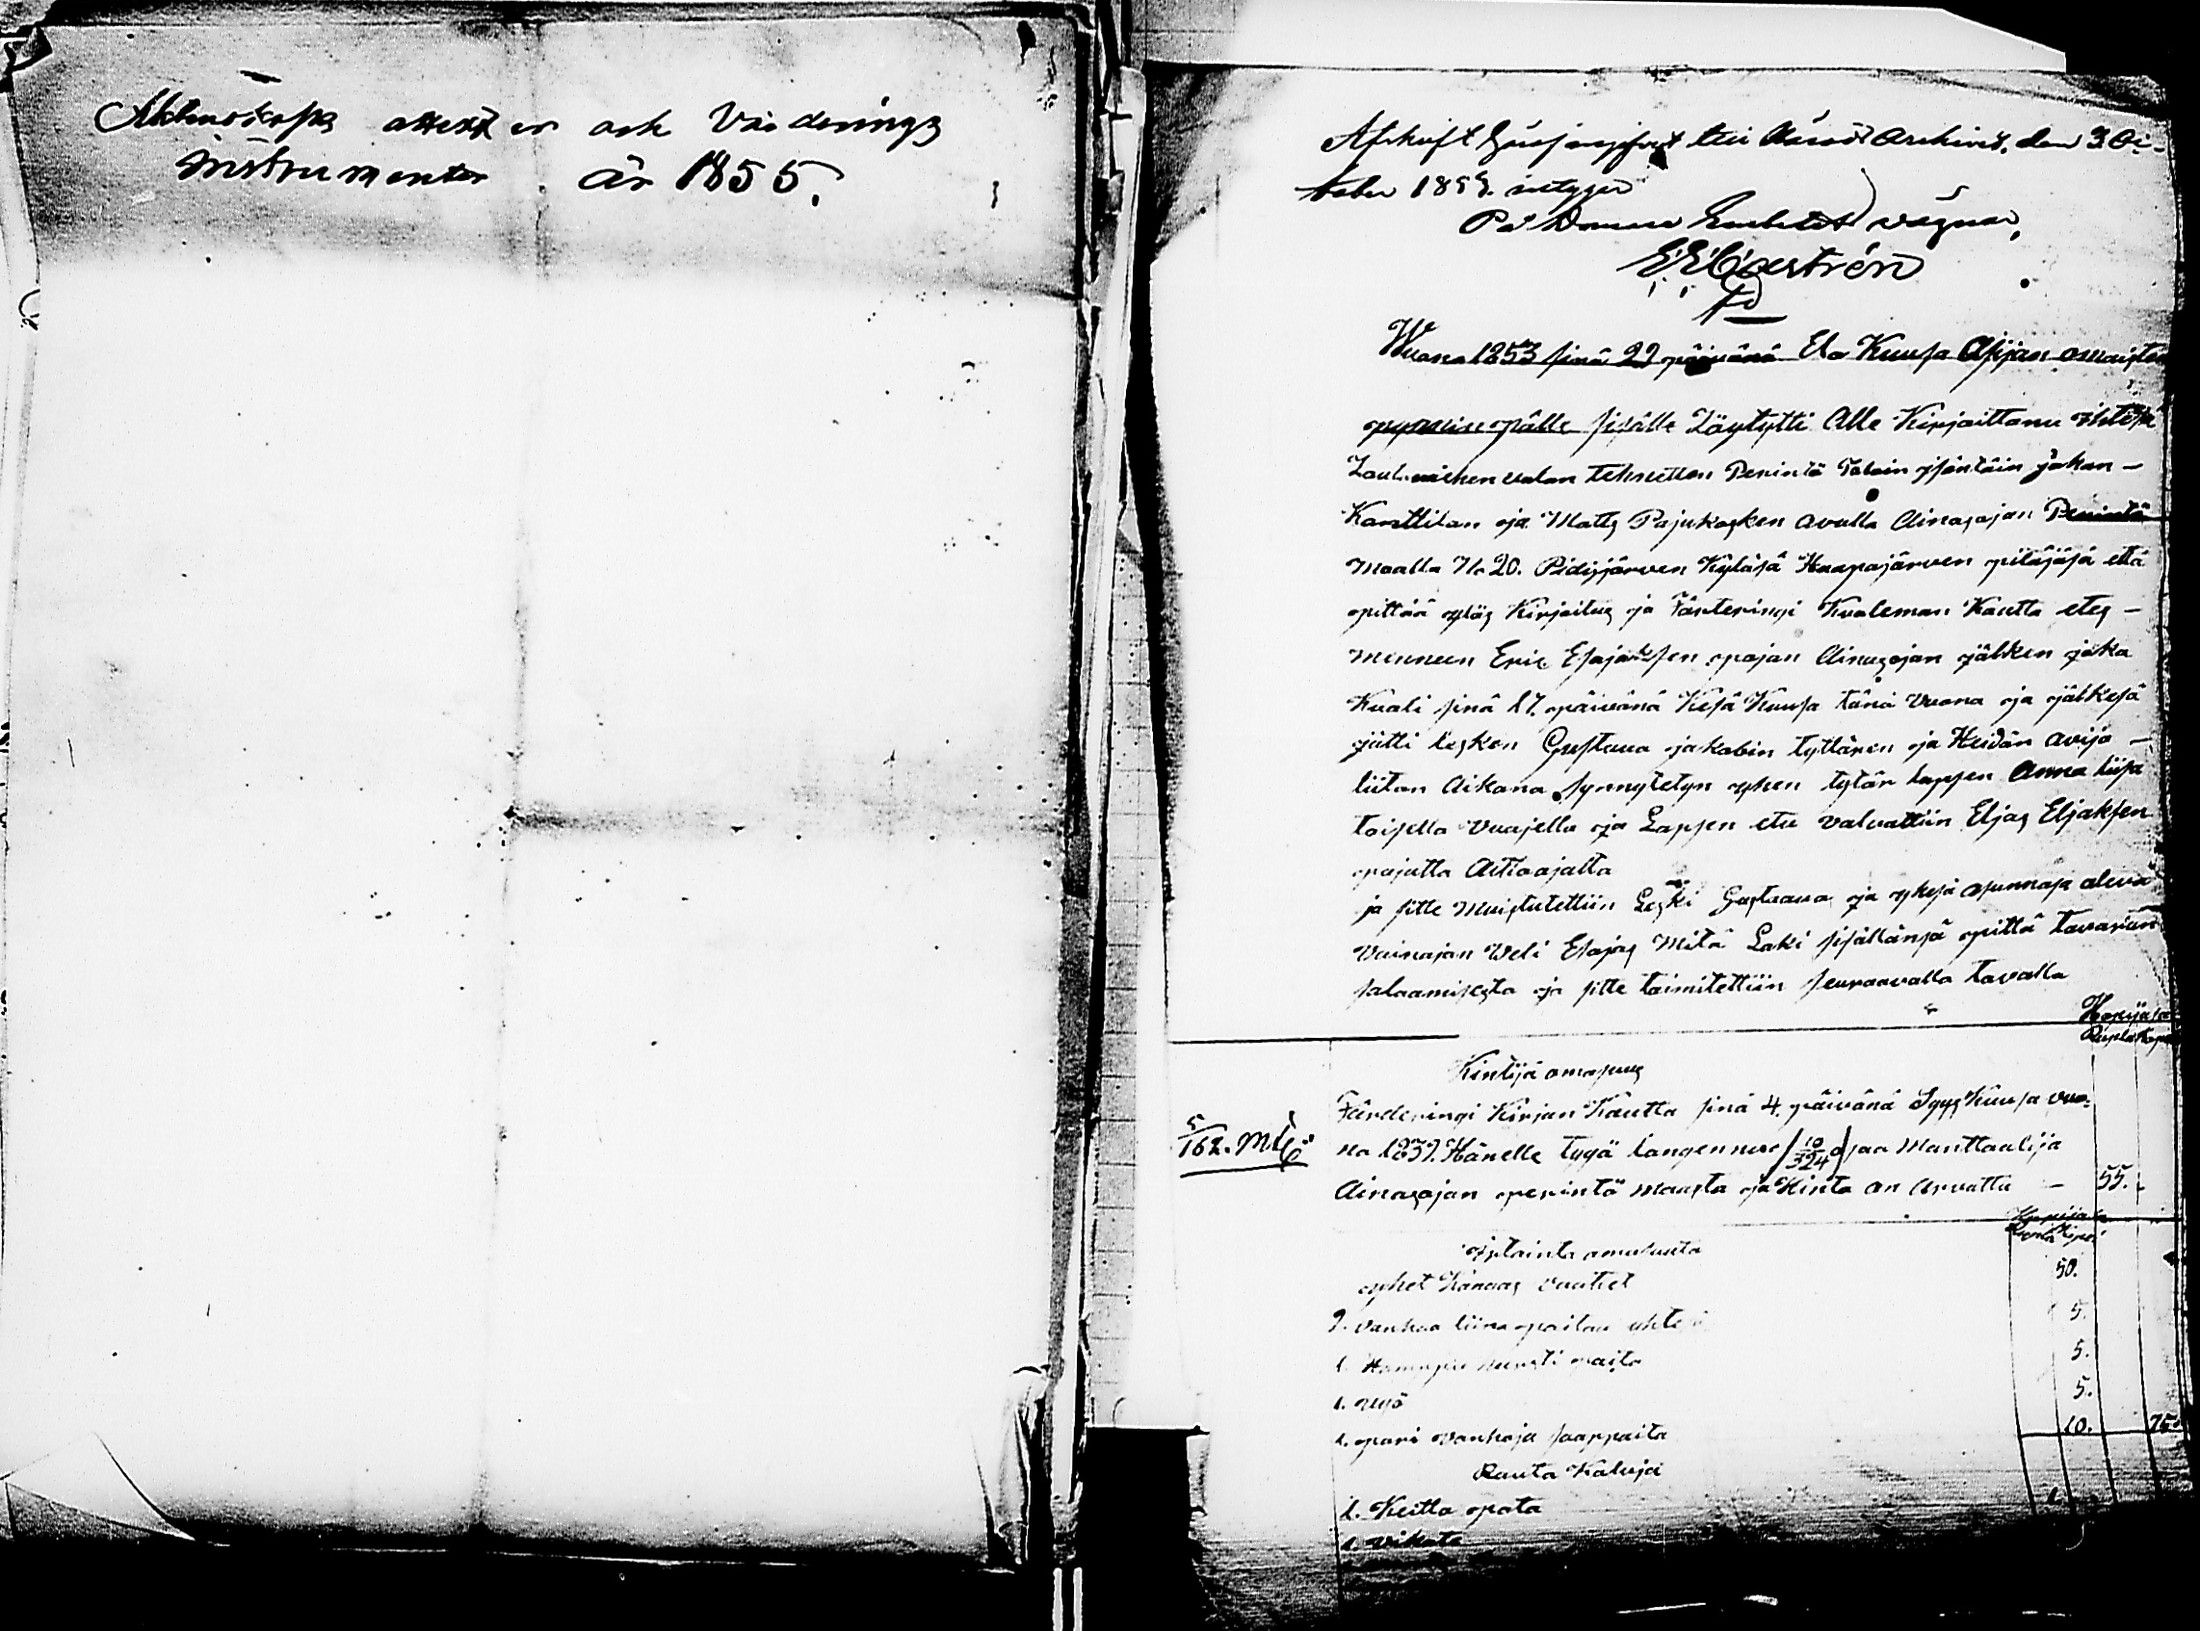 attester och Värderings
instrumenter år 1855.
Afskrift till Härads Archivet, den 3 Oc-
tober 1855. intygar
På Domare Embetets vägnar,
E. E. Cajastrén
Wuona 1853 sinä 29 päivänä Elo Kuusa Asijan omaisten
pyynnön pälle sisälle Löytytti Alle Kirjoittanu Ihtesä
Lautamiehen valan tehneitten Perintö Taloin isäntäin Johan
Karttilan ja Matts Pajukosken avulla Ainasojan Perintö
Maalla No 20. Pidisjärven Kyläsä Haapajärven pitäjäsä että
pittää ylös Kirjoitus ja Färteringi Kuoleman Kautta etes-
menneen Eric Esajaksen pojan Ainasojan jälken joka
Kuoli sinä 17. päivänä Kesä Kuusa tänä Vuona ja jälkesä
jätti lesken Gustava jakobin tyttären ja Heidän avijo-
liiton Aikana synnytetyn yhen tytär lapsen Anna liisa
toisella Vuojella ja Lapsen etu valvattiin Eljas Eljaksen
pojalta Aittoajalta
ja sitte Muistutettiin Leski Gustaava ja yhesä asunnosa oleva
Vainajan Weli Esajas Mitä Laki sisällänsä pittä tavaran
salaamisesta ja sitte toimitettiin seuraavalla tavalla
Hopijasa
Rupla Kopek
Kintijä omasuus
Färderingi Kirjan Kautta sinä 4. päivänä Syys Kuusa vuo-
na 1837. Hänelle tygä langennu (10/324) osaa Manttaalija
5/162. Mtl
Ainasojan perintö maasta ja Hinta on Arvattu — 55.
Hopijasa
Rupla Kopek
Irtainta omasuutta
yhet Kangas vaattet 50.
2. vanhaa liina paitaa yhtesä 5.
1. Hamppu mursti paita 5.
1. vyö 5.
1. pari vanhoja saappaita 10. 75
Rauta Kaluja
1. Keitto pata 1.
1. vikate